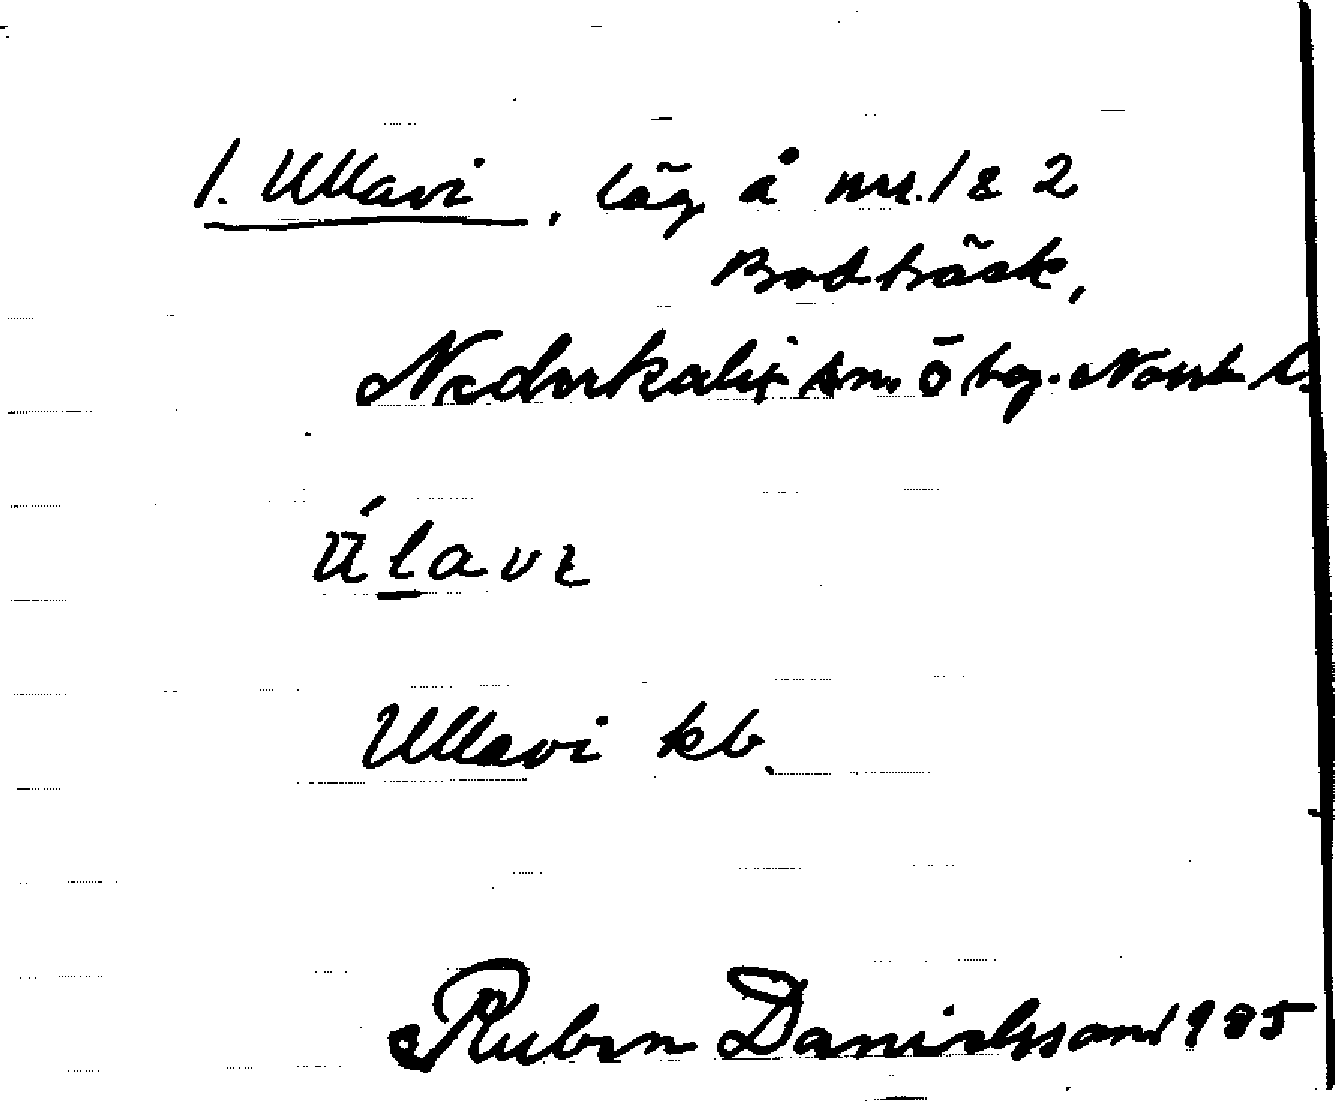 1. Ullavi, läg å nr. 1 & 2
Bodträsk,
Nederkalix sn. ö bog. Norrb l.
Úlavɩ
Ullavi kb.
Ruben Danielsson 1935